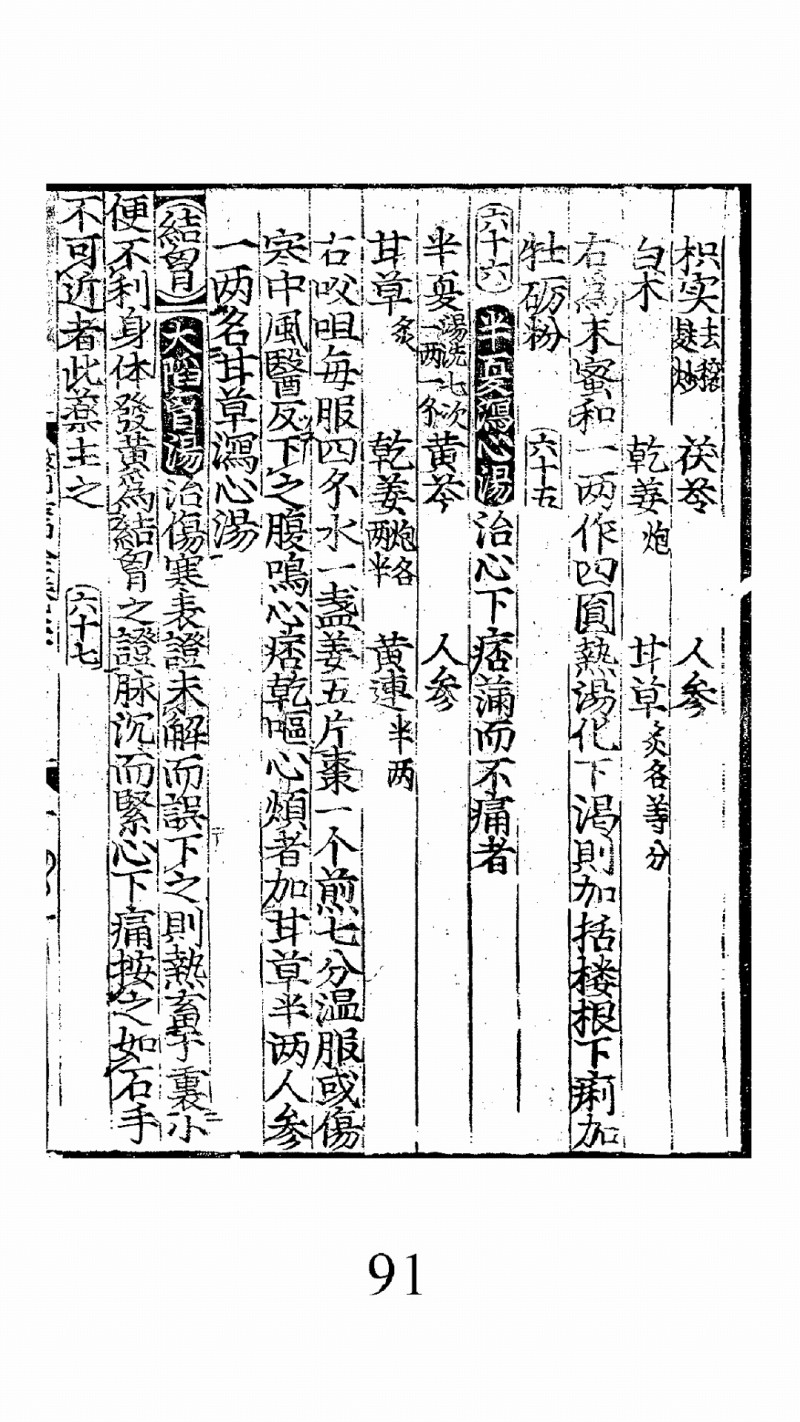 枳实去穰麩炒 茯苓 人参
白术 乾姜炮 甘草炙各等分
右為末蜜和一两作四圓熱湯化下渴則加括楼根下痢加
牡砺粉 六十五
六十六 半夏瀉心湯 治心下痞满而不痛者
半夏湯洗七次一两一分 黄芩 人参
甘草炙 乾姜炮各两半 黄連半两
右㕮咀每服四分水一盏姜五片棗一个煎七分温服或傷
寒中風醫反下之腹鳴心痞乾嘔心煩者加甘草半两人参
一两名甘草瀉心湯
結胷 大陷胷湯 治傷寒表證未解而誤下之則熱畜于裏小
便不利身体發黄為結胷之證脉沉而緊心下痛按之如石手
不可近者此薬主之 六十七
91